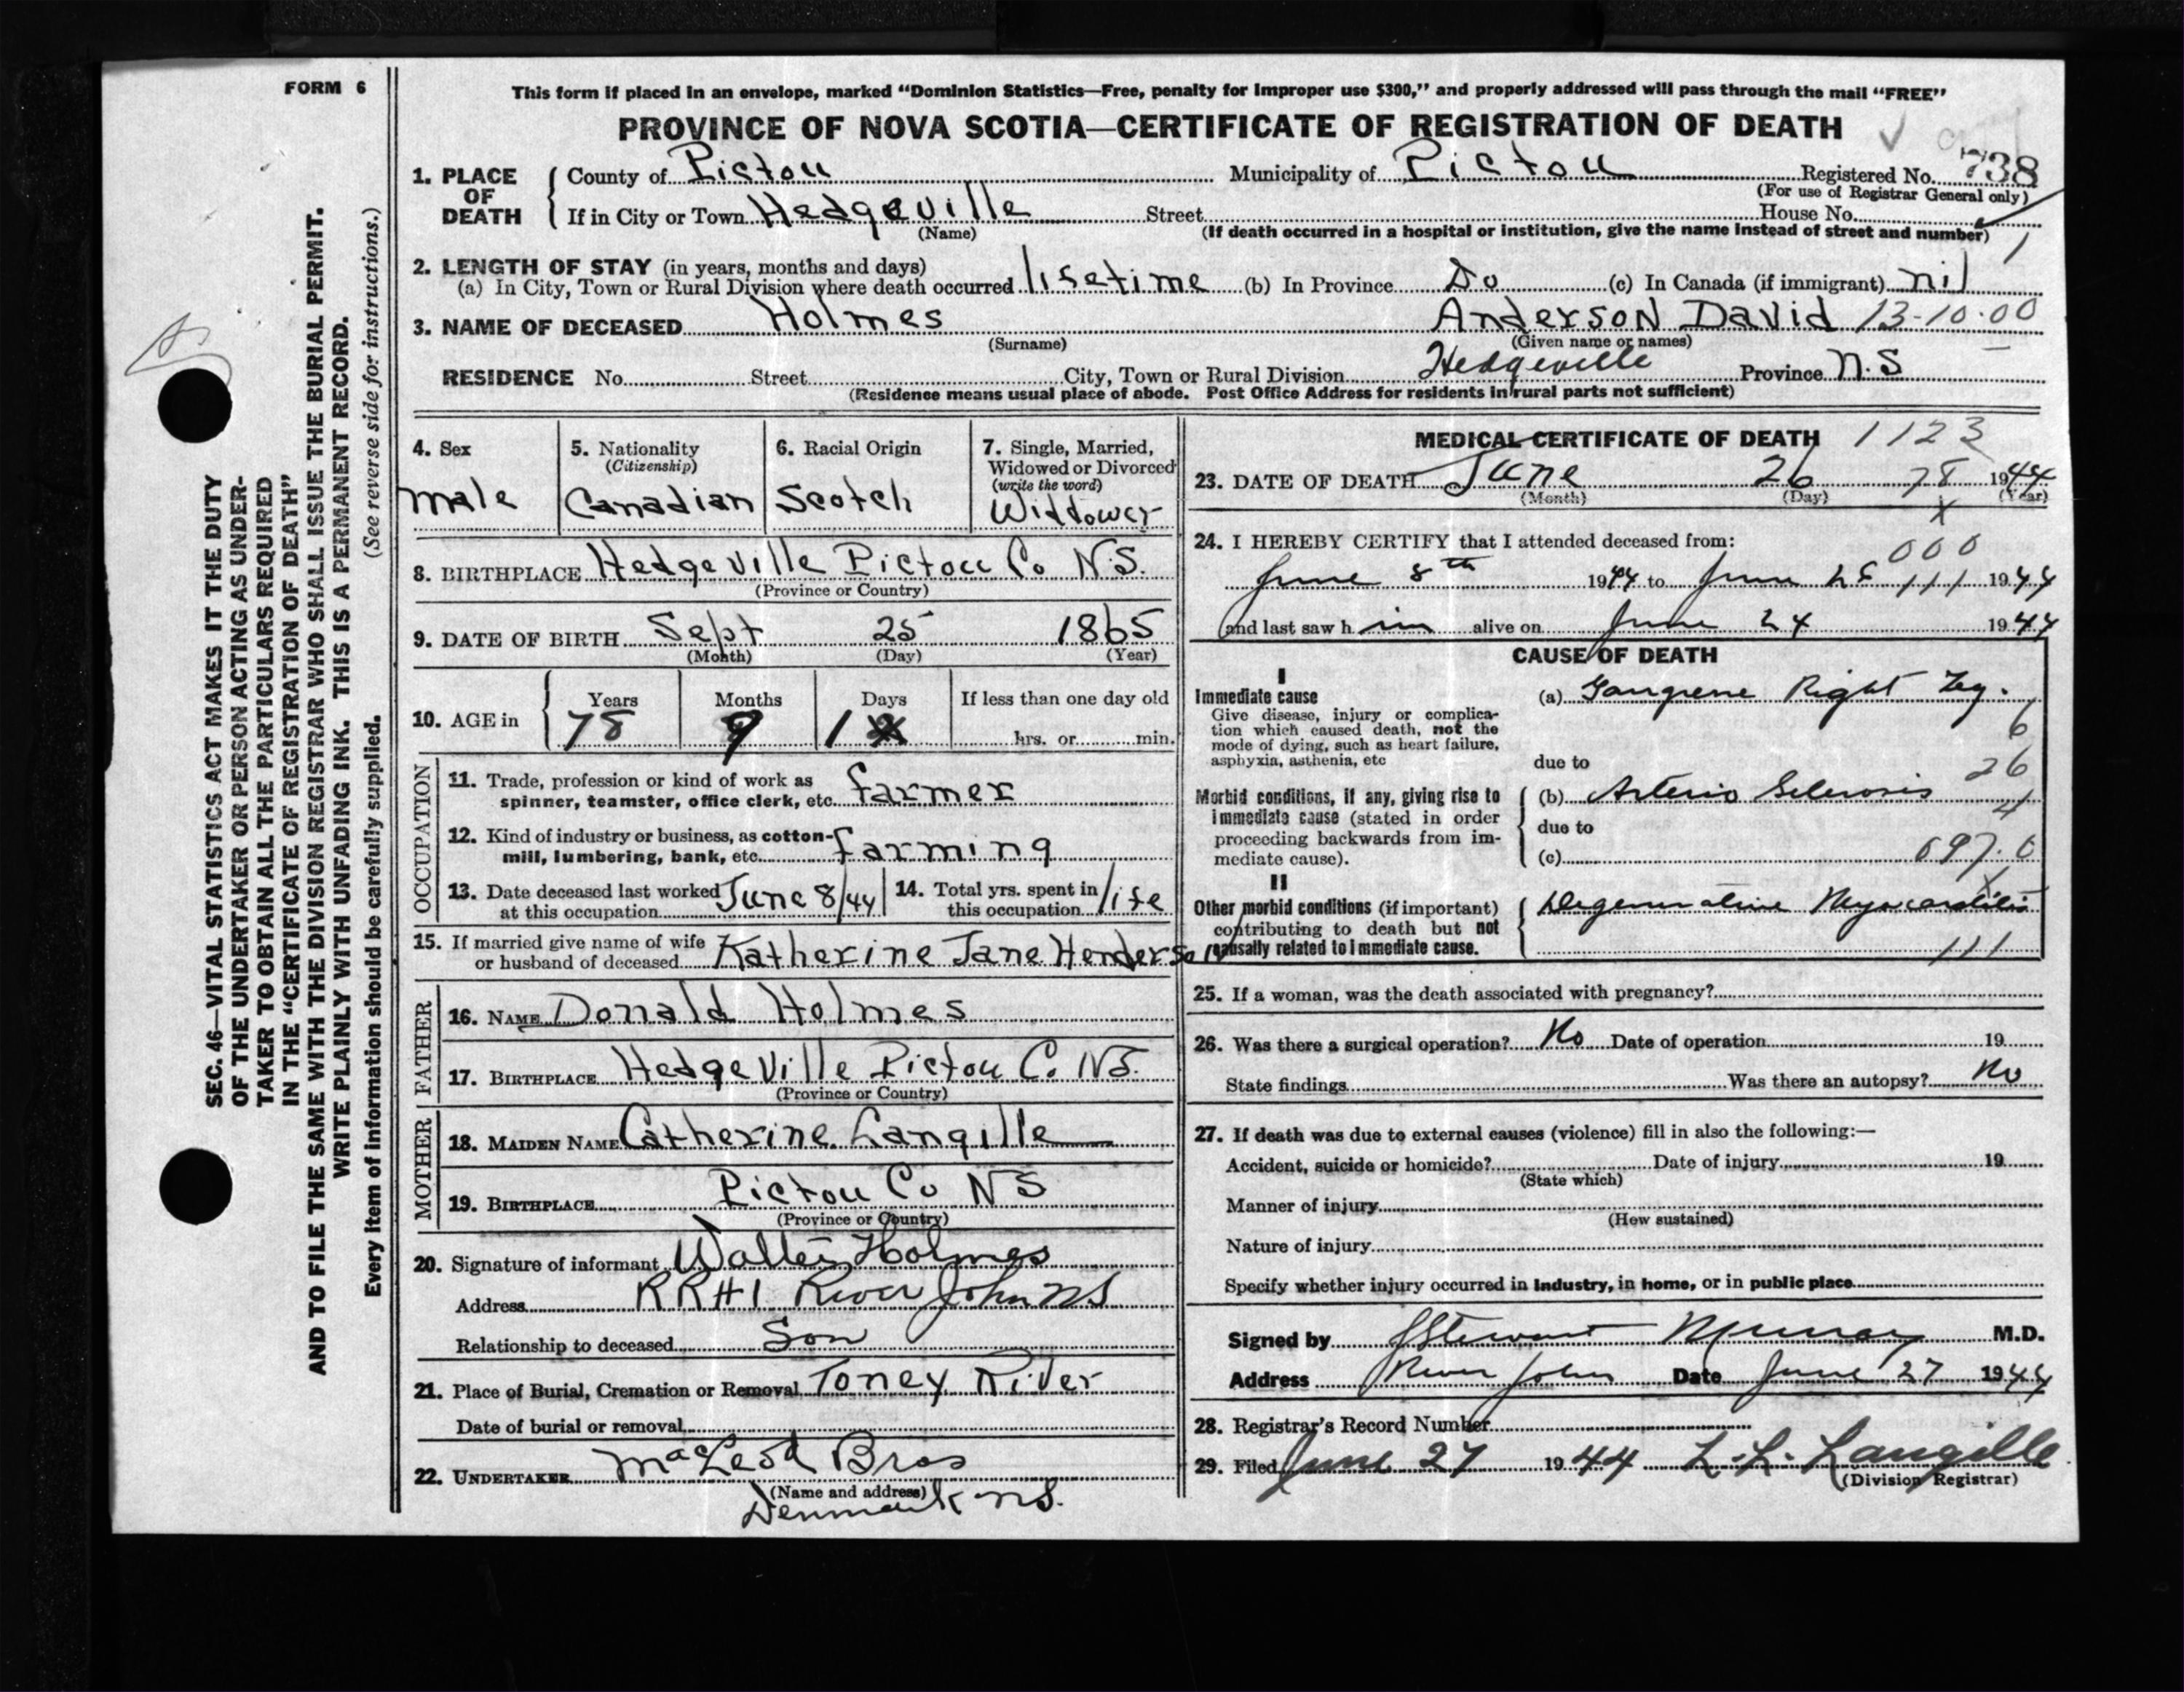 FORM 6
SEC. 46—VITAL STATISTICS ACT MAKES IT THE DUTY
OF THE UNDERTAKER OR PERSON ACTING AS UNDER-
TAKER TO OBTAIN ALL THE PARTICULARS REQUIRED
IN THE "CERTIFICATE OF REGISTRATION OF DEATH"
AND TO FILE THE SAME WITH THE DIVISION REGISTRAR WHO SHALL ISSUE THE BURIAL PERMIT.
WRITE PLAINLY WITH UNFADING INK. THIS IS A PERMANENT RECORD.
Every item of information should be carefully supplied. (See reverse side for instructions.)
This form if placed in an envelope, marked "Dominion Statistics—Free, penalty for improper use $300," and properly addressed will pass through the mail "FREE"
PROVINCE OF NOVA SCOTIA—CERTIFICATE OF REGISTRATION OF DEATH
1. PLACE OF DEATH County of Pictou Municipality of Pictou Registered No. 738
(For use of Registrar General only)
If in City or Town Hedgeville Street House No.
(Name) (If death occurred in a hospital or institution, give the name instead of street and number)
1
2. LENGTH OF STAY (in years, months and days)
(a) In City, Town or Rural Division where death occurred lifetime (b) In Province Do (c) In Canada (if immigrant) nil
3. NAME OF DECEASED Holmes Anderson David 13-10-00
(Surname) (Given name or names)
RESIDENCE No. Street City, Town or Rural Division Hedgeville Province N.S
(Residence means usual place of abode. Post Office Address for residents in rural parts not sufficient)
4. Sex
male
5. Nationality
(Citizenship)
Canadian
6. Racial Origin
Scotch
7. Single, Married,
Widowed or Divorced
(write the word)
Widdower
8. BIRTHPLACE Hedgeville Pictou Co N.S.
(Province or Country)
9. DATE OF BIRTH Sept 25 1865
(Month) (Day) (Year)
10. AGE in Years Months Days If less than one day old
78 9 1 hrs. or min.
OCCUPATION
11. Trade, profession or kind of work as
spinner, teamster, office clerk, etc. farmer
12. Kind of industry or business, as cotton-
mill, lumbering, bank, etc. farming
13. Date deceased last worked
at this occupation June 8/44
14. Total yrs. spent in
this occupation life
15. If married give name of wife
or husband of deceased Katherine Jane Henderson
FATHER
16. NAME Donald Holmes
17. BIRTHPLACE Hedgeville Pictou C. NS.
(Province or Country)
MOTHER
18. MAIDEN NAME Catherine Langille
19. BIRTHPLACE Pictou Co NS
(Province or Country)
20. Signature of informant Walter Holmes
Address RR#1 River John NS
Relationship to deceased Son
21. Place of Burial, Cremation or Removal Toney River
Date of burial or removal
22. UNDERTAKER MacLeod Bros
(Name and address)
Denmark NS.
MEDICAL CERTIFICATE OF DEATH 1123
23. DATE OF DEATH June 26 78 1944
(Month) (Day) (Year)
x
24. I HEREBY CERTIFY that I attended deceased from:
000
June 8th 1944 to June 26 111 1944
and last saw him alive on June 24 1944
CAUSE OF DEATH
I
Immediate cause
Give disease, injury or complica-
tion which caused death, not the
mode of dying, such as heart failure,
asphyxia, asthenia, etc
(a) Gangrene Right Leg.
6
due to
26
Morbid conditions, if any, giving rise to
immediate cause (stated in order
proceeding backwards from im-
mediate cause).
(b) Arterio Sclerosis
4
due to
(c) 097.0
x
II
Other morbid conditions (if important)
contributing to death but not
causally related to immediate cause.
Degenerative Myocarditis
111
25. If a woman, was the death associated with pregnancy?
26. Was there a surgical operation? No Date of operation 19
State findings Was there an autopsy? No
27. If death was due to external causes (violence) fill in also the following:—
Accident, suicide or homicide? Date of injury 19
(State which)
Manner of injury
(How sustained)
Nature of injury
Specify whether injury occurred in industry, in home, or in public place
Signed by J Stewart Murray M.D.
Address River John Date June 27 1944
28. Registrar's Record Number
29. Filed June 27 1944 L. L. Langille
(Division Registrar)